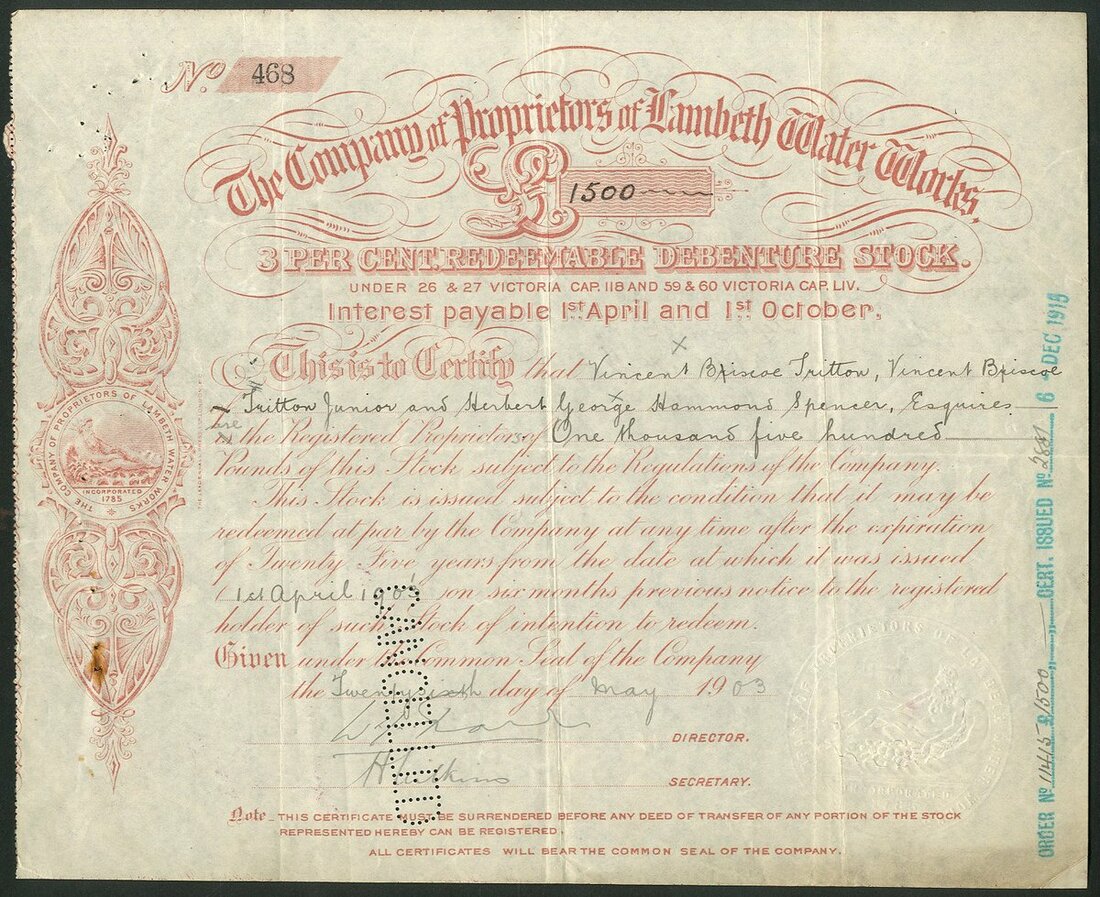 No. 468
The Company of Proprietors of Lambeth Water Works.
£ 1500
3 PER CENT. REDEEMABLE DEBENTURE STOCK.
UNDER 26 & 27 VICTORIA CAP. 118 AND 59 & 60 VICTORIA CAP. LIV.
Interest payable 1st April and 1st October.
This is to Certify that Vincent Briscoe Tritton, Vincent Briscoe
Tritton Junior and Herbert George Hammond Spencer, Esquires
are the Registered Proprietors of One thousand five hundred
Pounds of this Stock subject to the Regulations of the Company.
This Stock is issued subject to the condition that it may be
redeemed at par by the Company at any time after the expiration
of Twenty Five years from the date at which it was issued
1st April 1903 on six months previous notice to the registered
holder of such Stock of intention to redeem.
Given under the Common Seal of the Company
the Twenty sixth day of May 1903
DIRECTOR.
SECRETARY.
Note - THIS CERTIFICATE MUST BE SURRENDERED BEFORE ANY DEED OF TRANSFER OF ANY PORTION OF THE STOCK
REPRESENTED HEREBY CAN BE REGISTERED.
ALL CERTIFICATES WILL BEAR THE COMMON SEAL OF THE COMPANY.
THE COMPANY OF PROPRIETORS OF LAMBETH WATER WORKS
INCORPORATED
1785
CANCELLED
ORDER No. 11415 £1500 CERT. ISSUED No. 6 DEC 1915